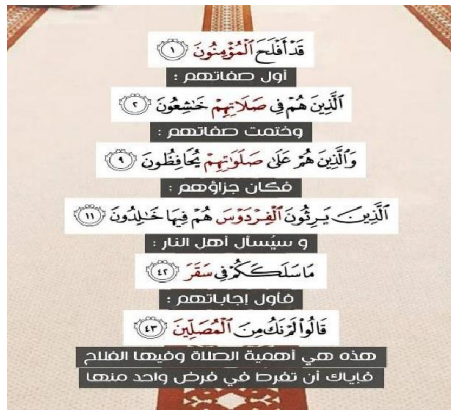 قَدْ أَفْلَحَ الْمُؤْمِنُونَ ١
أول صفاتهم :
الَّذِينَ هُمْ فِي صَلَاتِهِمْ خَاشِعُونَ ٢
وختمت صفاتهم :
وَالَّذِينَ هُمْ عَلَىٰ صَلَوَاتِهِمْ يُحَافِظُونَ ٩
فكان جزاؤهم :
الَّذِينَ يَرِثُونَ الْفِرْدَوْسَ هُمْ فِيهَا خَالِدُونَ ١١
و سيُسأل أهل النار :
مَا سَلَكَكُمْ فِي سَقَرَ ٤٢
فأول إجاباتهم :
قَالُوا لَمْ نَكُ مِنَ الْمُصَلِّينَ ٤٣
هذه هي أهمية الصلاة وفيها الفلاح
فإياك أن تفرط في فرض واحد منها